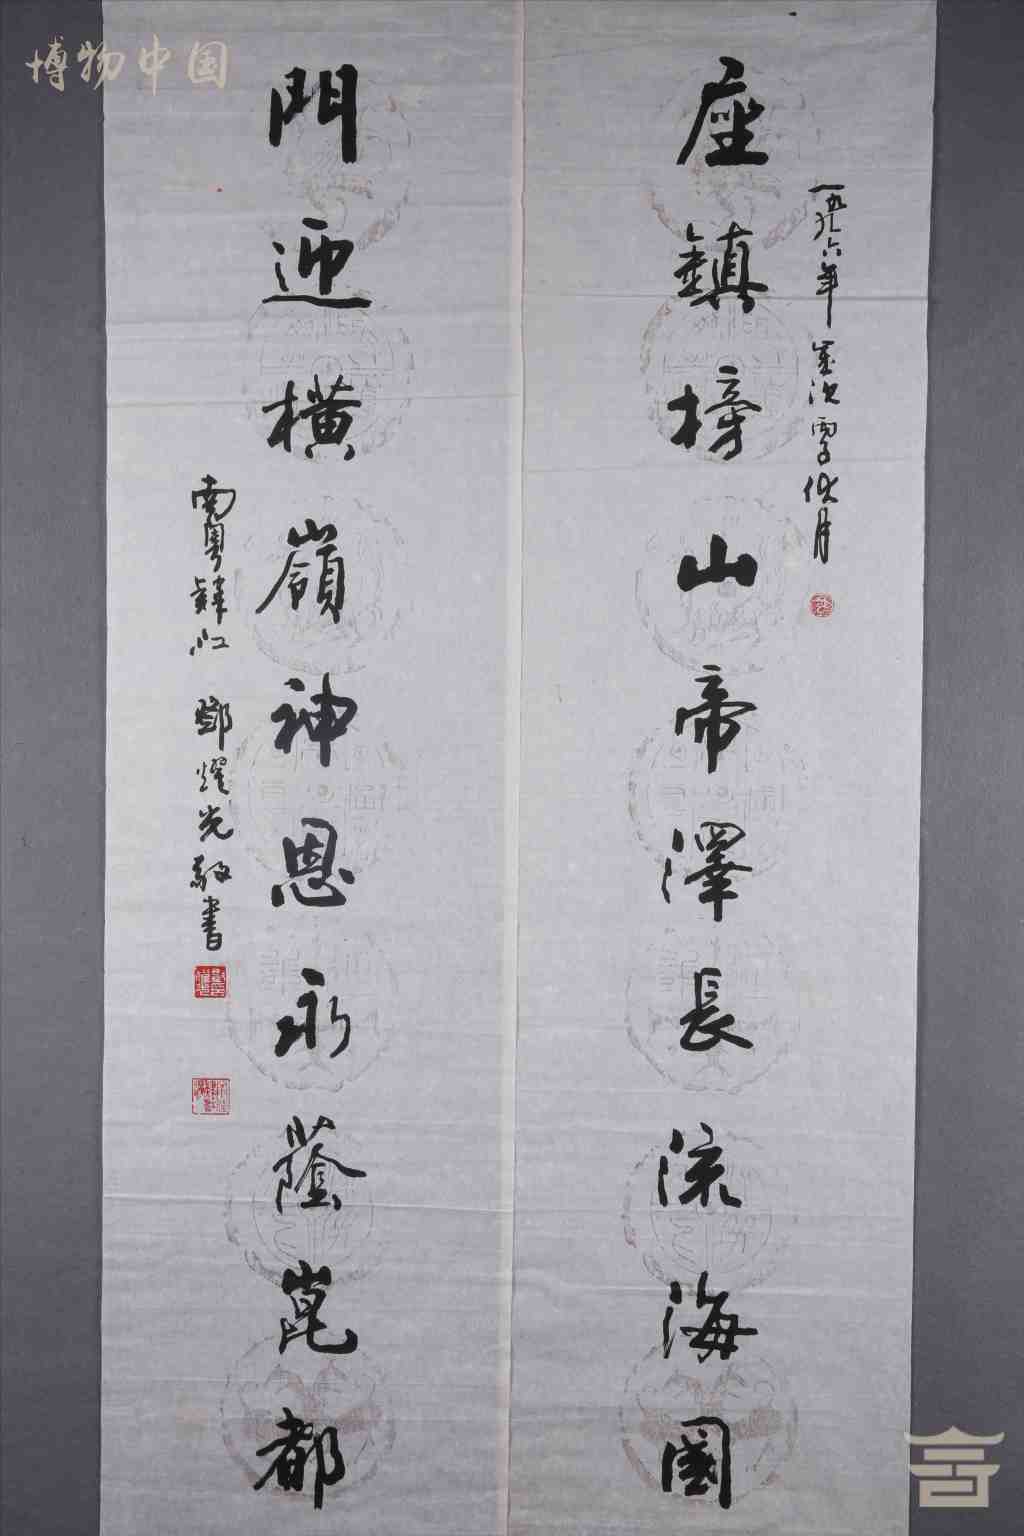 博物中国
一九九六年 歲次丙子伏月
座鎮榜山帝澤長流海國
門迎橫嶺神恩永蔭崑都
南粵肄江 鄧燿光敬書